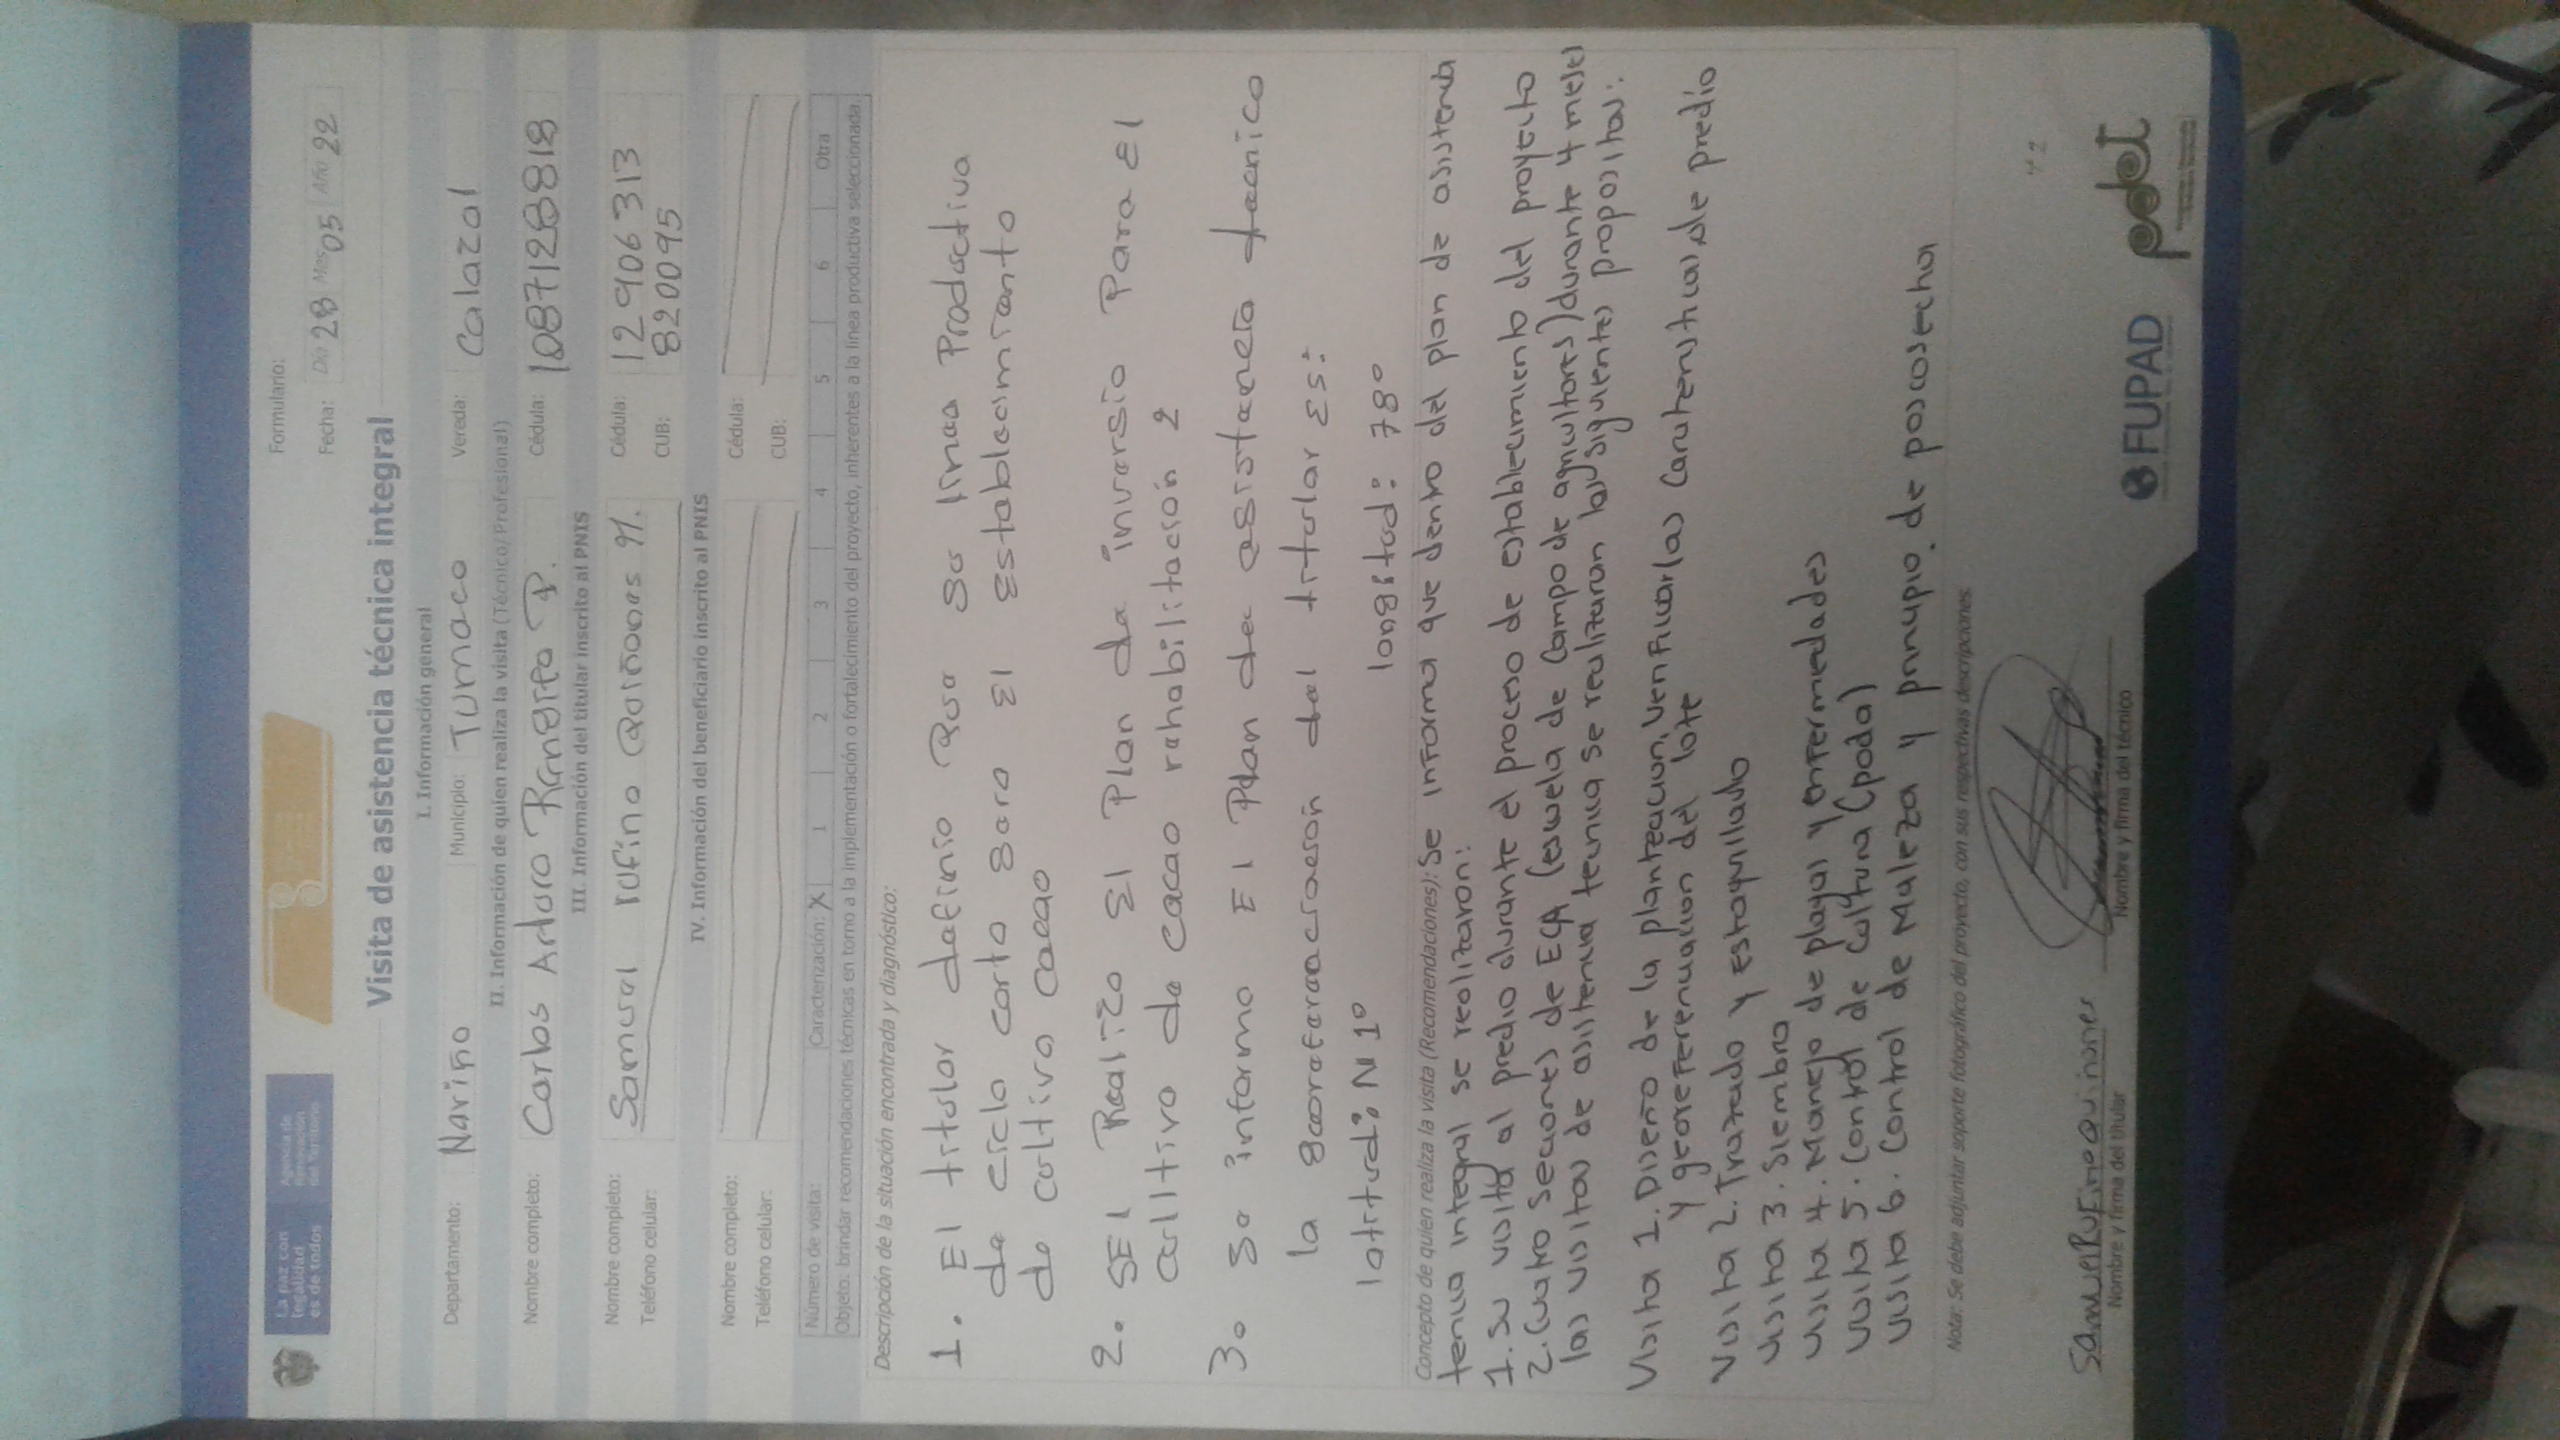 La paz con
legalidad
es de todos
Agencia de
Renovación
del Territorio
Formulario:
Fecha: Día 28 Mes 05 Año 22
Visita de asistencia técnica integral
I. Información general
Departamento: Nariño Municipio: Tumaco Vereda: Calazal
II. Información de quien realiza la visita (Técnico/Profesional)
Nombre completo: Carlos Arturo P. Cédula: 1087128818
III. Información del titular inscrito al PNIS
Nombre completo: Samuel rufino Quiñones Cédula: 12906313
Teléfono celular: CUB: 8200095
IV. Información del beneficiario inscrito al PNIS
Nombre completo: Cédula:
Teléfono celular: CUB:
Número de visita: Caracterización: X 1 2 3 4 5 6 Otra
Objeto: brindar recomendaciones técnicas en torno a la implementación o fortalecimiento del proyecto, inherentes a la línea productiva seleccionada.
Descripción de la situación encontrada y diagnóstico:
1. El titular definio que su linea Productiva
de ciclo corto sera El Establecimiento
de cultivo cacao
2. SE Realizo El Plan de inversio Para El
culltivo de cacao rehabilitación 2
3. Se informo El Plan de asistencia tecnico
la georeferenciacion del titular Es:
latitud: N 1° longitud: 78°
Concepto de quien realiza la visita (Recomendaciones): Se informa que dentro del plan de asistencia
tecnica integral se realizaron:
1. Su visita al predio durante el proceso de establecimiento del proyecto
2. Cuatro Secciones de ECA (escuela de Campo de agricultores) durante 4 meses
las visitas de asistencia tecnica se realizaran las siguientes propositos:
Visita 1. Diseño de la planteacion, Verificar las Caracteristicas de predio
y georeferenciacion del lote
Visita 2. Trazado y estaquillado
Visita 3. Siembra
Visita 4. Manejo de plagas y enfermedades
Visita 5. Control de Cultura (poda)
Visita 6. Control de Maleza y principio de poscosecha
Nota: Se debe adjuntar soporte fotográfico del proyecto, con sus respectivas descripciones.
Samuel Rufino quinones
Nombre y firma del titular Nombre y firma del técnico
FUPAD
pdet